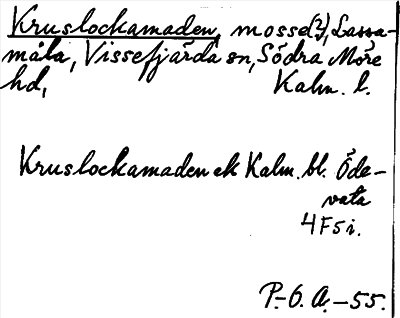 Kruslockamaden, mosse(?), Lassa-
måla, Vissefjärda sn, Södra Möre
hd, Kalm. l.
Kruslockamaden ek Kalm. bl. Öde-
vata
4F5i.
P.-O. A. -55.